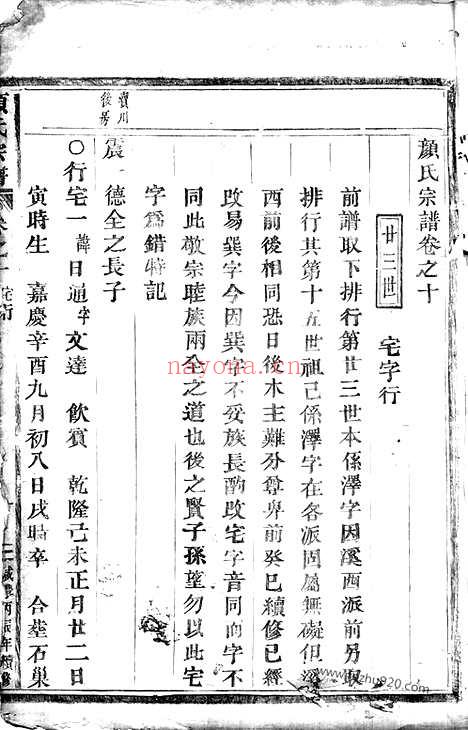 顏氏宗譜卷之十
廿三世　宅字行
前譜取下排行第廿三世本係澤字因溪西派前另取
排行其第十五世祖已係澤字在各派固屬無礙但溪
西前後相同恐日後木主難分尊卑前癸巳續修已經
改易巽字今因巽字不妥族長酌改宅字音同而字不
同此敬宗睦族兩全之道也後之賢子孫望勿以此宅
字爲錯特記
震 德全之長子
川
後
〇行宅一諱日通字文達　飲賓　乾隆己未正月廿二日
寅時生　嘉慶辛酉九月初八日戌時卒　合塟石巢
氏宗譜
咸豐丙辰年續修
nayona.cn
www.jpzhu920.com